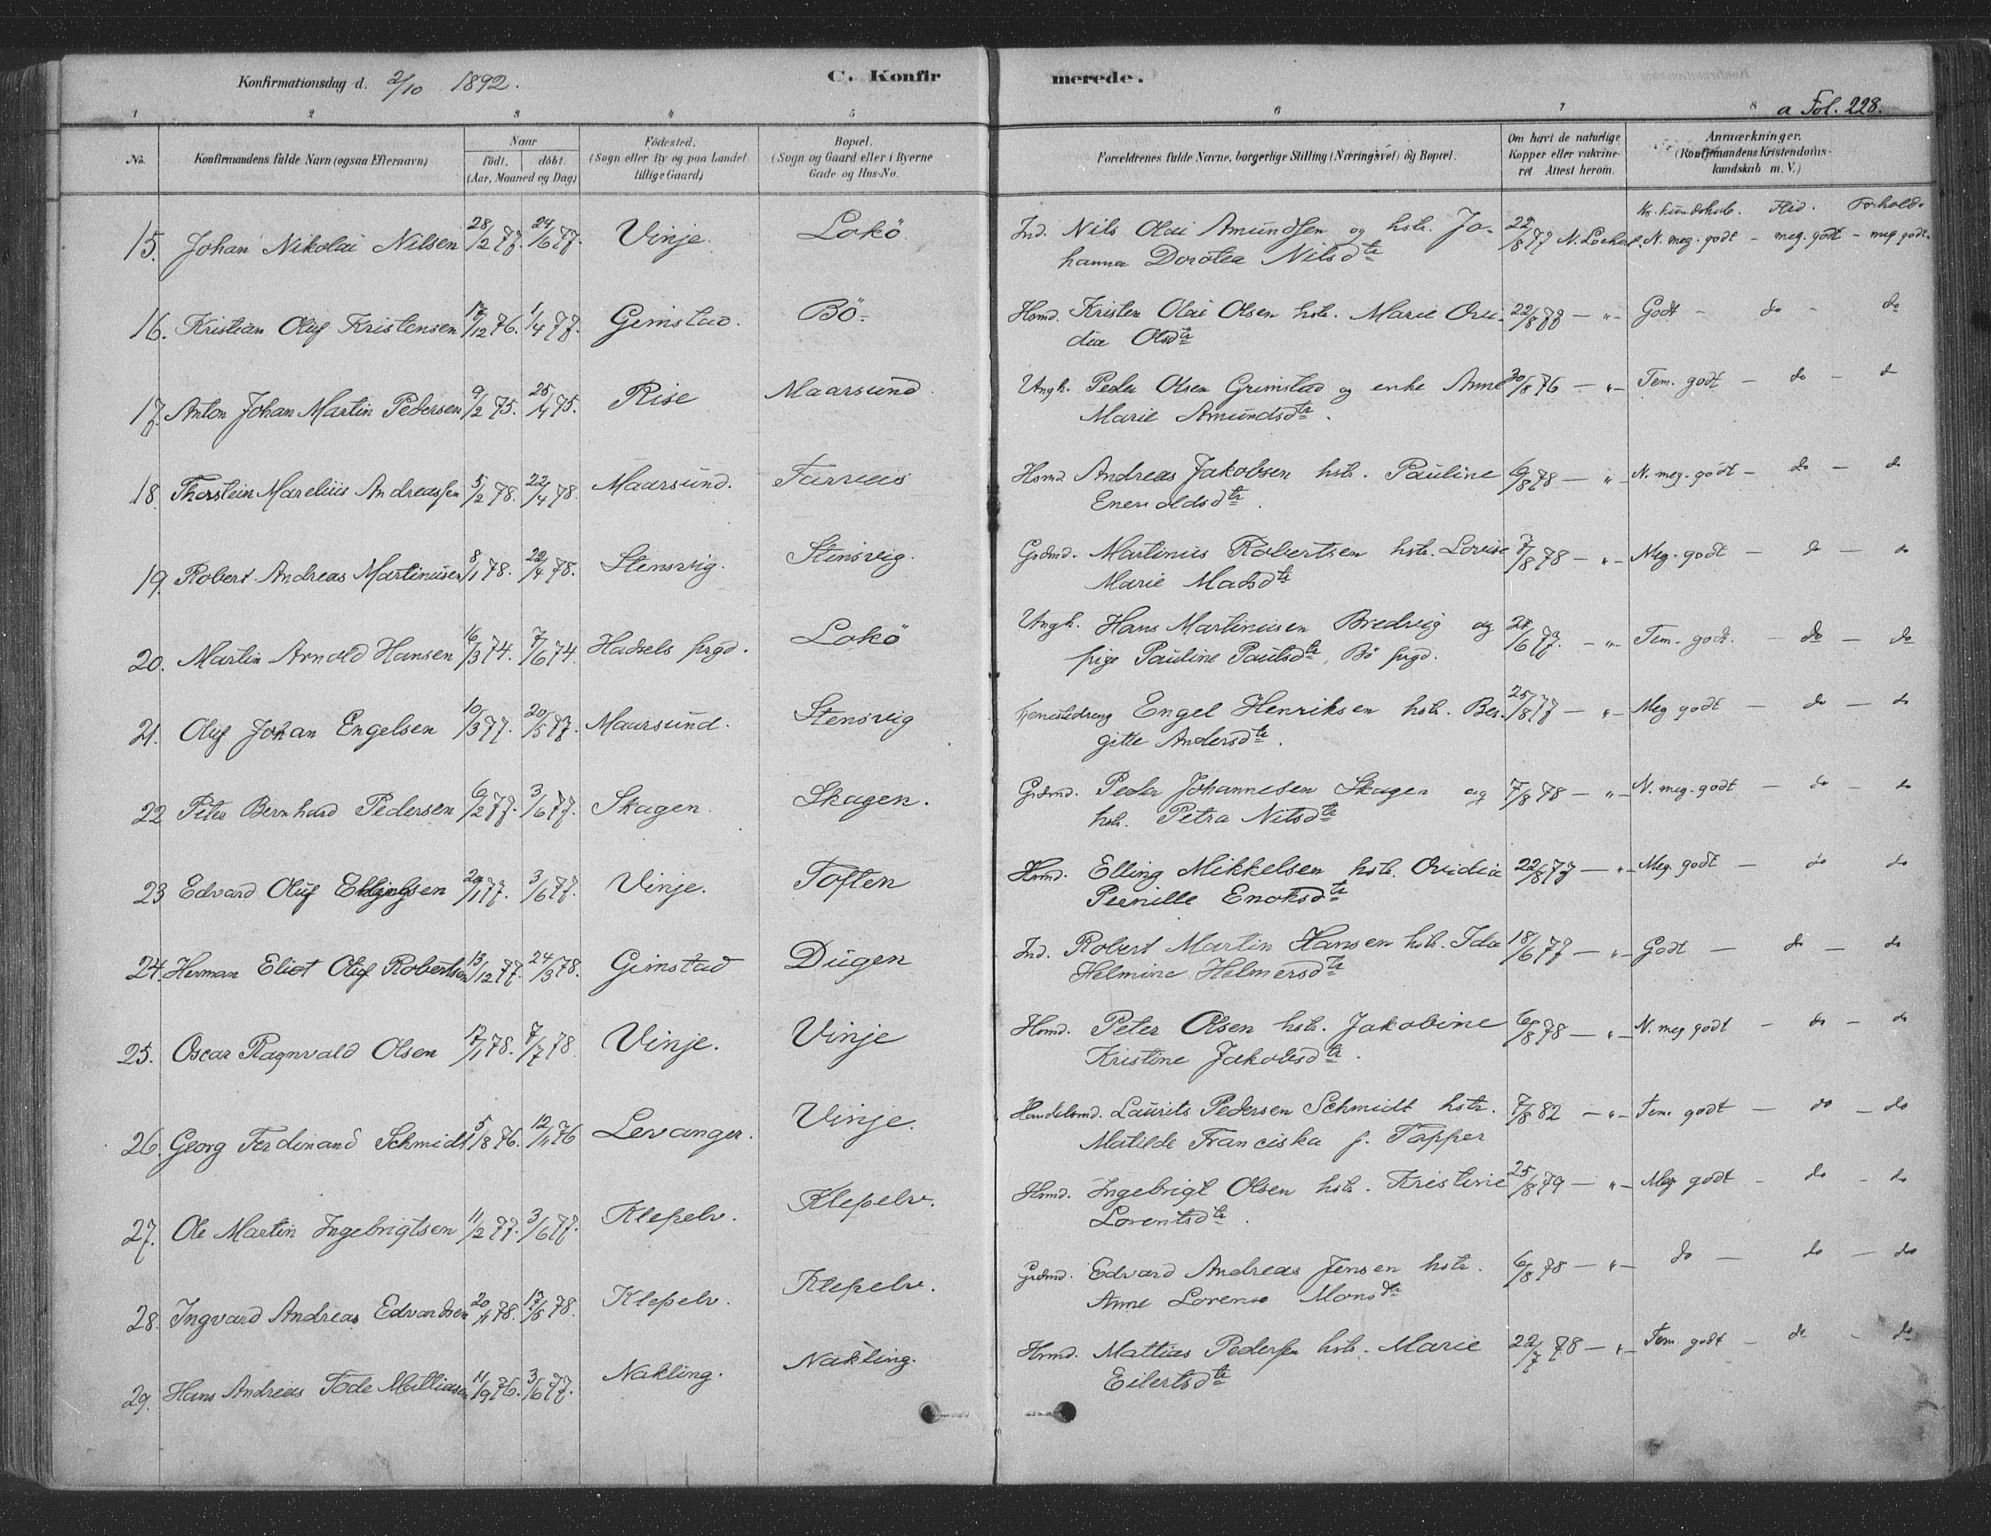 Konfirmationsdag d. 2/10 1892.
C. Konfirmerede.
a Fol. 228.
1 2 3 4 5 6 7 8
No. Konfirmandens fulde Navn (ogsaa Efternavn) Naar født. døbt. (Aar, Maaned og Dag) Fødested. (Sogn eller By og paa Landet tillige Gaard) Bopæl. (Sogn og Gaard eller i Byerne Gade og Hus-No. Forældrenes fulde Navne, borgerlige Stilling (Næringsvei) og Bopæl. Om havt de naturlige Kopper eller vakcineret Attest herom. Anmærkninger. (Konfirmandens Kristendomskundskab m. V.)
Kr. kundskab. Flid. Forhold.
15. Johan Nikolai Nilsen 28/2 77. 24/6 77. Vinje. Lokö Ind. Nils Olai Amundsen og hstr. Jo-
hanna Dorotea Nilsdtr 22/8 77 N. Lockert. N. meg. godt - meg. godt - meg godt.
16. Kristian Oluf Kristensen 17/12 76. 1/4 77. Gimstad. Bö. Hsmd. Kristen Olai Olsen hstr. Marie Ovi-
dia Olsdtr 22/8 78 - " - Godt - do - do
17. Anton Johan Martin Pedersen 9/2 75. 25/4 75. Rise Maarsund. Ungk. Peder Olsen Grimstad og enke Anne
Marie Amundsdtr. 30/8 76 - " - Tem. godt - do - d
18. Thorstein Marelius Andreassen 5/2 78. 22/4 78. Maarsund. Farvaas Hsmd. Andreas Jakobsen hstr. Pauline
Enevoldsdtr. 6/8 78 - " N. meg. godt - do - do
19. Robert Andreas Martinusen 8/1 78. 22/4 78. Stensvig. Stensvig. Grdmd. Martinus Robertsen hstr. Lovise
Marie Madsdtr 7/8 78 - " - Meg. godt - do - do
20. Martin Arnold Hansen 16/3 74. 7/6 74. Hadsels prgd. Lokö Ungk. Hans Martinusen Bredvig og
pige Pauline Paulsdtr, Bö prgd. /6 77. - " - Tem. godt. - do - do
21. Oluf Johan Engelsen 10/3 77. 20/5 77. Maarsund. Stensvig Engel Henriksen hstr. Ber-
gitte Andersdtr. 25/8 77 - " - Meg godt - do - do
22 Peter Bernhard Pedersen 6/2 77. 3/6 77. Skagen. Skagen. Grdmd. Peder Johannesen Skagen og
hstr. Petra Nilsdtr 7/8 78 - " - N. meg. godt - do - do
23 Edvard Oluf Ellingsen 29/1 77. 3/6 77. Vinje. Toften Hsmd. Elling Mikkelsen hstr. Ovidia
Pernille Enoksdtr 22/8 77 - " - Meg. godt - do do
24. Herman Eliot Oluf Robertsen 13/12 77. 24/3 78. Gimstad Dugen Ind. Robert Martin Hansen hstr. Ida
Helmine Helmersdtr 18/6 77 - " - Godt - do - do
25. Oscar Ragnvald Olsen 17/1 78. 7/7 78. Vinje. Vinje Hsmd. Peter Olsen hstr. Jakobine
Kristine Jakobsdtr. 6/8 78 - " - N. meg godt - do - do
26. Georg Ferdinand Schmidt 5/8 76. 12/11 76 Levanger. Vinje. Handelsmd. Laurits Pedersen Schmidt hstr.
Matilde Franciska f. Tapper 7/8 82 - " - Tem. godt - do - do
27. Ole Martin Ingebrigtsen 11/2 77. 3/6 77. Klepelv. Klepelv. Hsmd. Ingebrigt Olsen hstr. Kristine
Lorentsdtr. 25/8 79 - " - Meg godt - do - do
28. Ingvard Andreas Edvardsen 20/1 78. 17/5 78. Klepelv. Klepelv. Grdmd. Edvard Andreas Jensen hstr.
Anne Lorense Monsdtr 6/8 78 - " - do - do - do
29. Hans Andreas Tode Mattiasen 11/9 76. 3/6 77. Nakling. Nakling. Hsmd. Mattias Pedersen hstr. Marie
Eilertsdtr 22/7 78 - " - Tem. godt - do - do